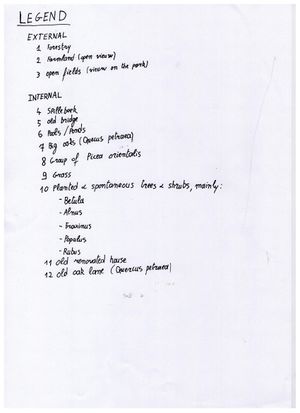 LEGEND
EXTERNAL
1 Forestry
2 Farmland (open view)
3 open fields (view on the park)
INTERNAL
4
5 old bridge
6 Pools / Ponds
7 Big oaks (Quercus petraea)
8 Group of Picea orientalis
9 Grass
10 Planted & spontaneous trees & shrubs, mainly:
- Betula
- Alnus
- Fraxinus
- Populus
- Rubus
11 old renovated house
12 old oak lane (Quercus petraea)